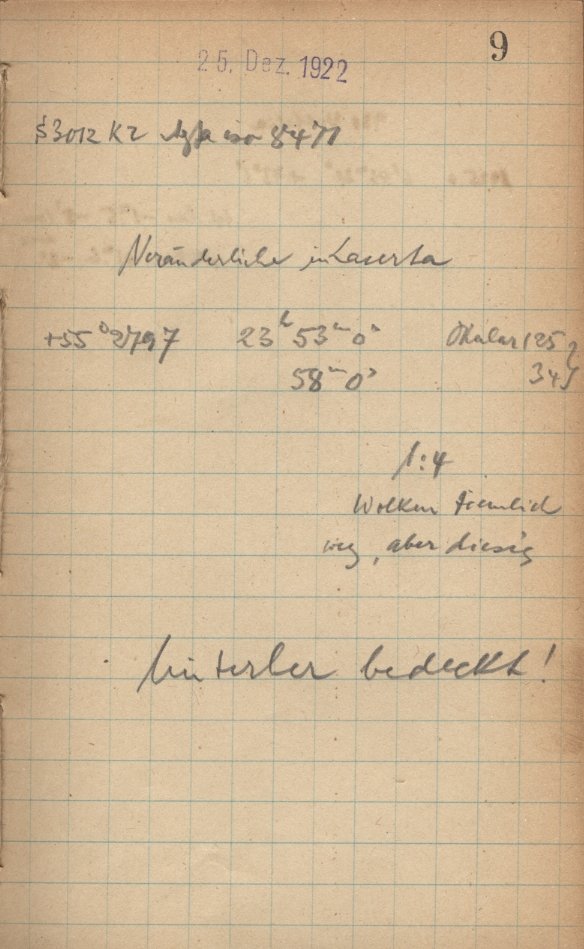 9
25. Dez. 1922
3012 K2 Agfa iso 8471
Veränderliche in Laserta
+55° 2797 23h 53m 0s Okular 125
58m 0s 34
1:4
Wolken ziemlich
weg, aber diesig
bedeckt!